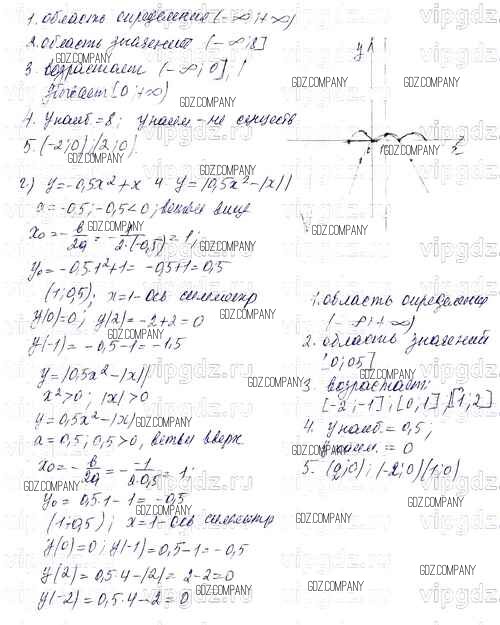 1. область определения (-∞; +∞)
2. область значений (-∞; 8]
3. возрастает (-∞; 0];
убывает [0; +∞)
4. y наиб. = 8; y наим. - не существ
5. (-2; 0); (2; 0)
г) y = -0,5x² + x и y = |0,5x² - |x||
a = -0,5; -0,5 < 0; ветви вниз
x₀ = -в/2a = -1/2·(-0,5) = 1;
y₀ = -0,5·1² + 1 = -0,5 + 1 = 0,5
(1; 0,5); x = 1 - ось симметр
y(0) = 0; y(2) = -2 + 2 = 0
y(-1) = -0,5 - 1 = -1,5
y = |0,5x² - |x||
x² > 0; |x| > 0
y = 0,5x² - |x|
a = 0,5; 0,5 > 0, ветви вверх
x₀ = -в/2a = - -1/2·0,5 = 1;
y₀ = 0,5·1 - 1 = -0,5
(1; -0,5); x = 1 - ось симметр
y(0) = 0; y(-1) = 0,5 - 1 = -0,5
y(2) = 0,5·4 - |2| = 2 - 2 = 0
y(-2) = 0,5·4 - 2 = 0
y
x
1. область определения
(-∞; +∞)
2. область значений
[0; 0,5]
3. возрастает:
[-2; -1]; [0, 1]; [1; 2]
4. y наиб. = 0,5;
y наим. = 0
5. (0; 0); (-2; 0) (1; 0)
GDZ.COMPANY
vipgdz.ru